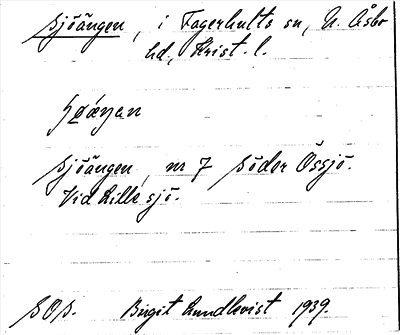 Sjöängen, i Fagerhults sn, N. Åsbo
hd, Krist. l.
Sjöängen, nr 7 Söder Össjö.
Vid Lille sjö.
SOS. Birgit Rundkvist 1939.